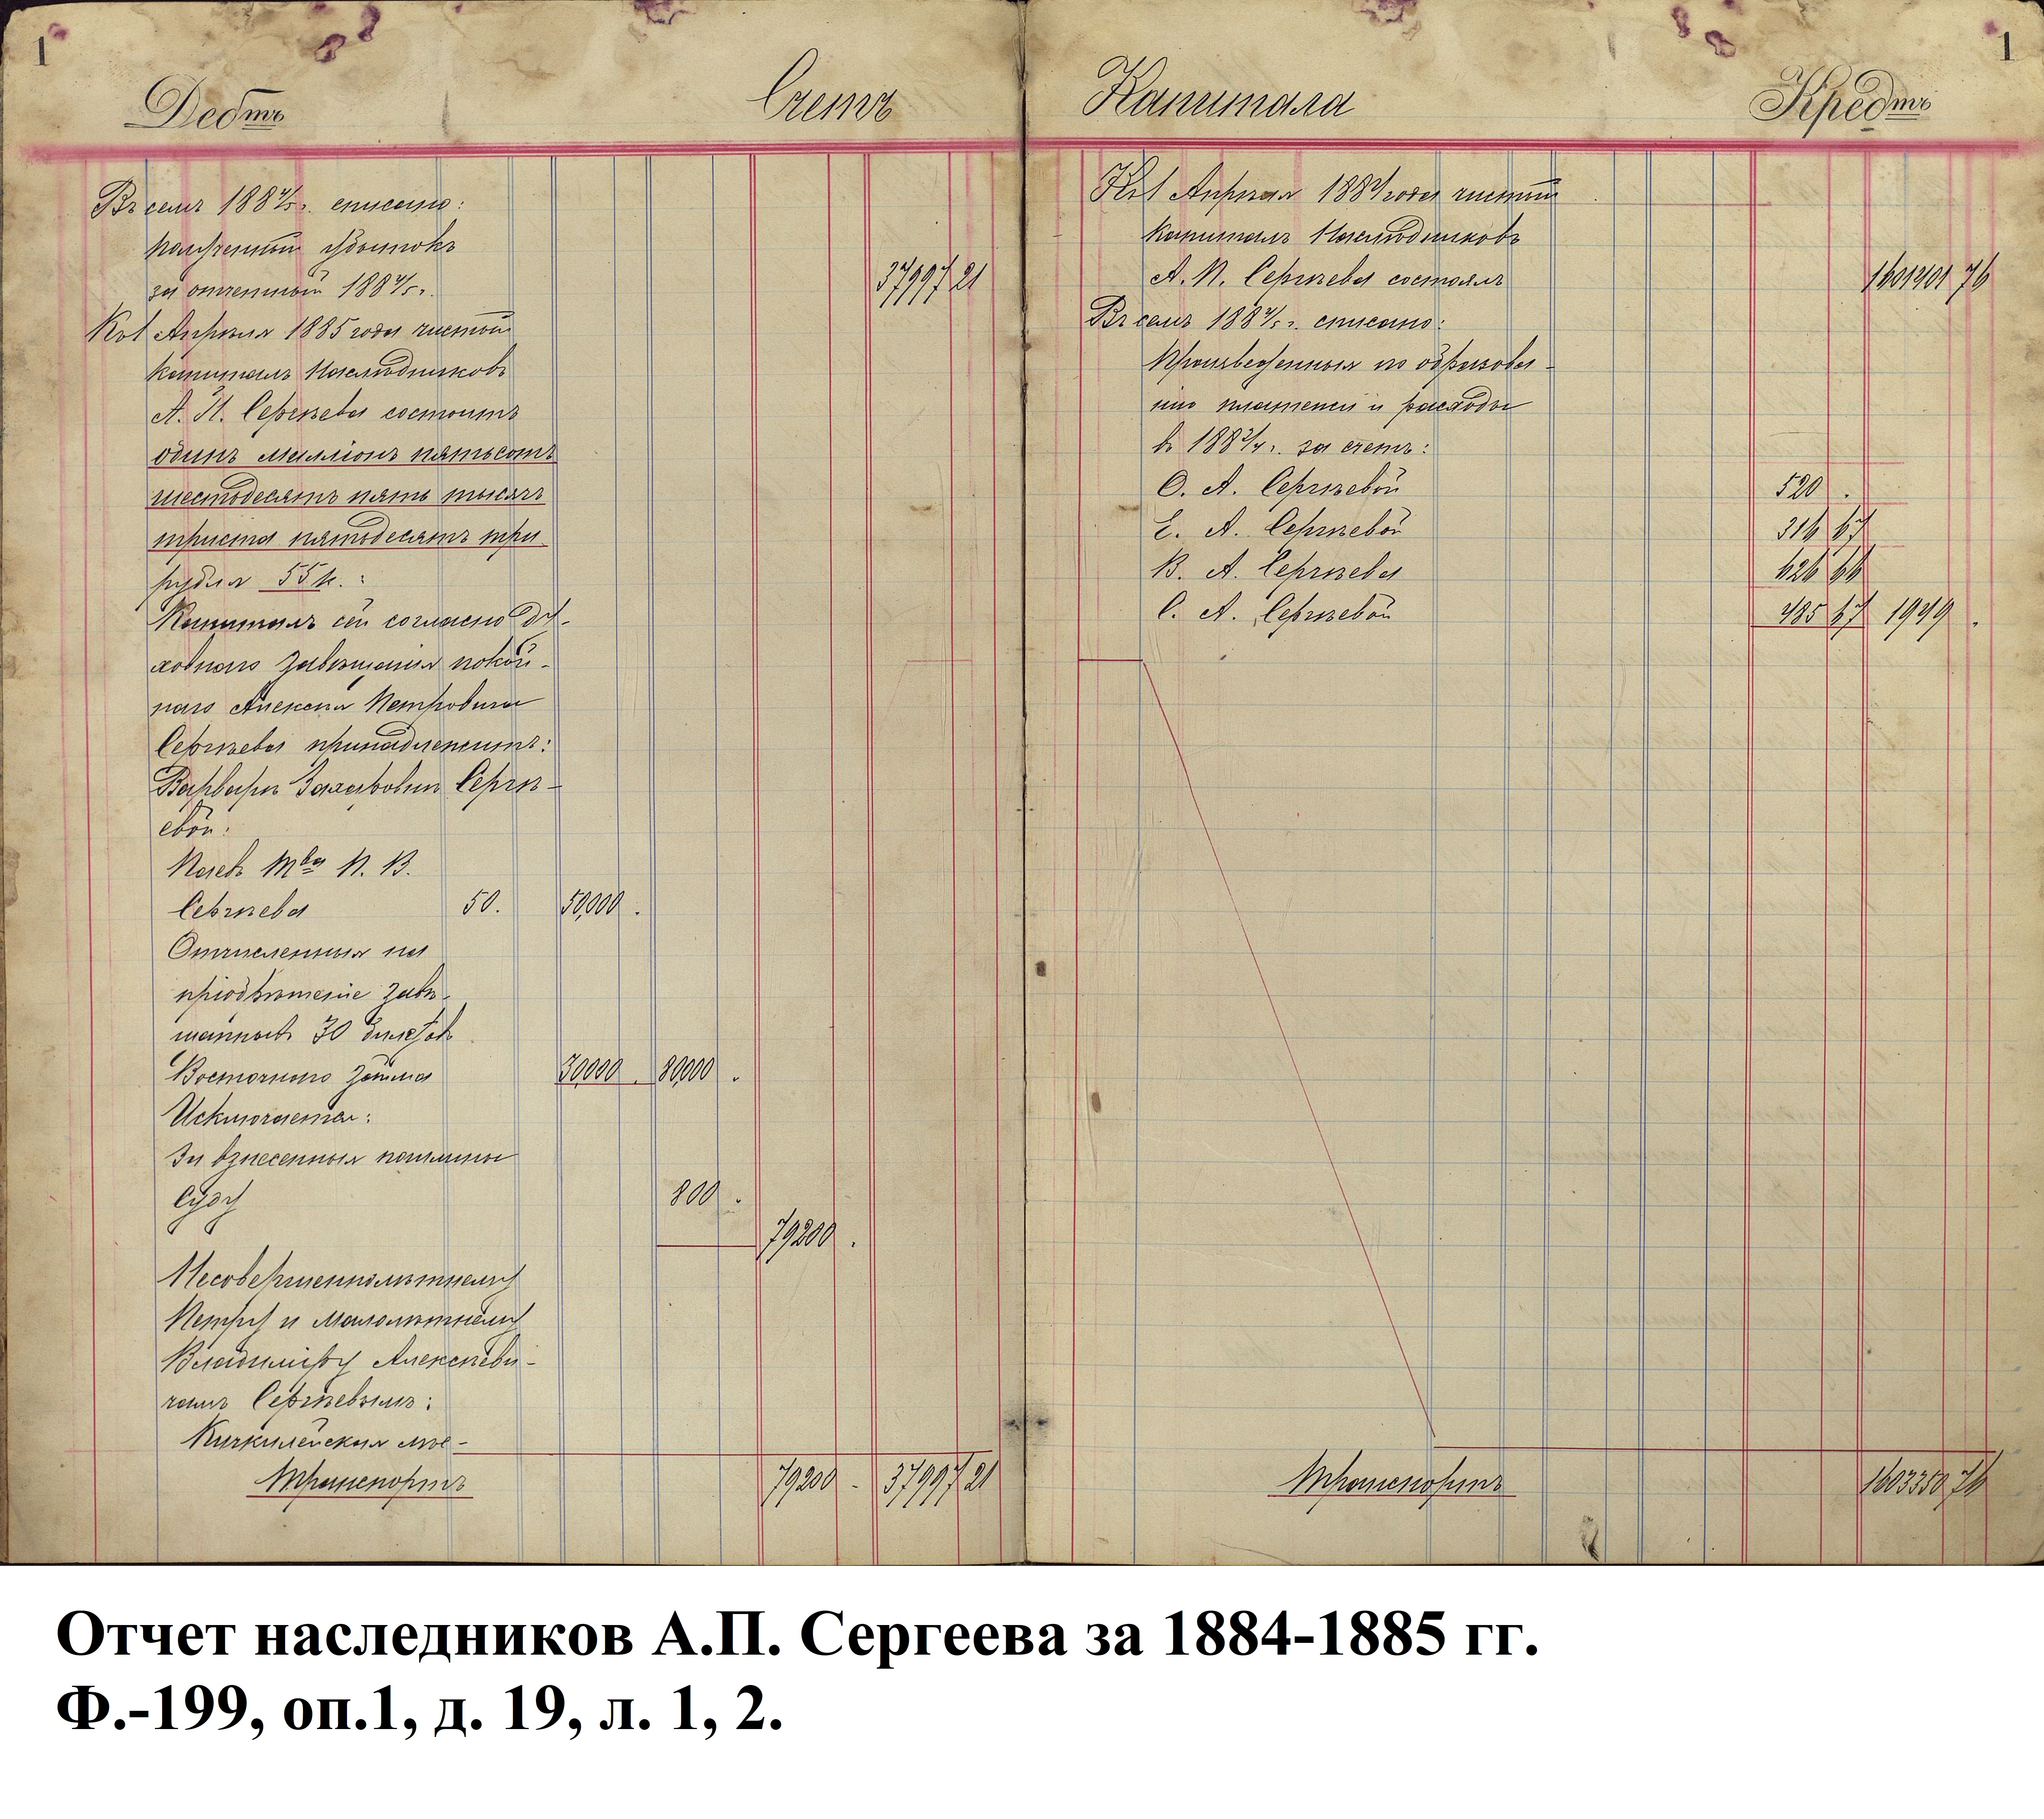 1
Дебтъ
Счетъ
Въ семъ 1884/5 г. списано:
полученный убытокъ
за отчетный 1884/5 г.
37997 21
Къ 1 Апрѣля 1885 года чистый
капиталъ Наслѣдниковъ
А. П. Сергѣева состоитъ
одинъ милліонъ пятьсотъ
шестьдесятъ пять тысячъ
триста пятьдесятъ три
рубля 55 к.:
Капиталъ сей согласно Ду-
ховнаго Завѣщанія покой-
наго Алексѣя Петровича
Сергѣева принадлежитъ:
Варварѣ Захаровнѣ Сергѣ-
евой:
Паевъ Тва П. В.
Сергѣева 50. 50,000 .
Отчисленныя на
пріобрѣтеніе завѣ-
щанныхъ 30 билетовъ
Восточнаго Займа 30,000 . 80,000 .
Исключается:
За взнесенныя пошлины
Суду 800 .
79200 .
Несовершеннолѣтнему
Петру и Малолѣтнему
Владиміру Алексѣеви-
чамъ Сергѣевымъ:
Кичкилейская мѣс-
Транспортъ 79200 - 37997 21
Капитала
Кредтъ
1
Къ 1 Апрѣля 1884 года чистый
капиталъ Наслѣдниковъ
А. П. Сергѣева состоялъ 1601401 76
Въ семъ 1884/5 г. списано:
Произведенныя по образова-
нію платежи и расходы
въ 1883/4 г. за счетъ:
О. А. Сергѣевой 520 .
Е. А. Сергѣевой 316 67
В. А. Сергѣева 626 66
С. А. Сергѣевой 485 67 1949 .
Транспортъ 1603350 76
Отчет наследников А.П. Сергеева за 1884-1885 гг.
Ф.-199, оп.1, д. 19, л. 1, 2.